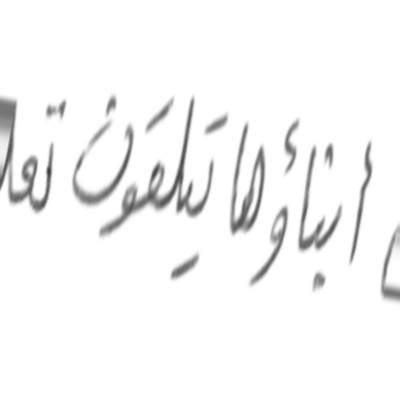 أبناؤها يتلقون تعلـ